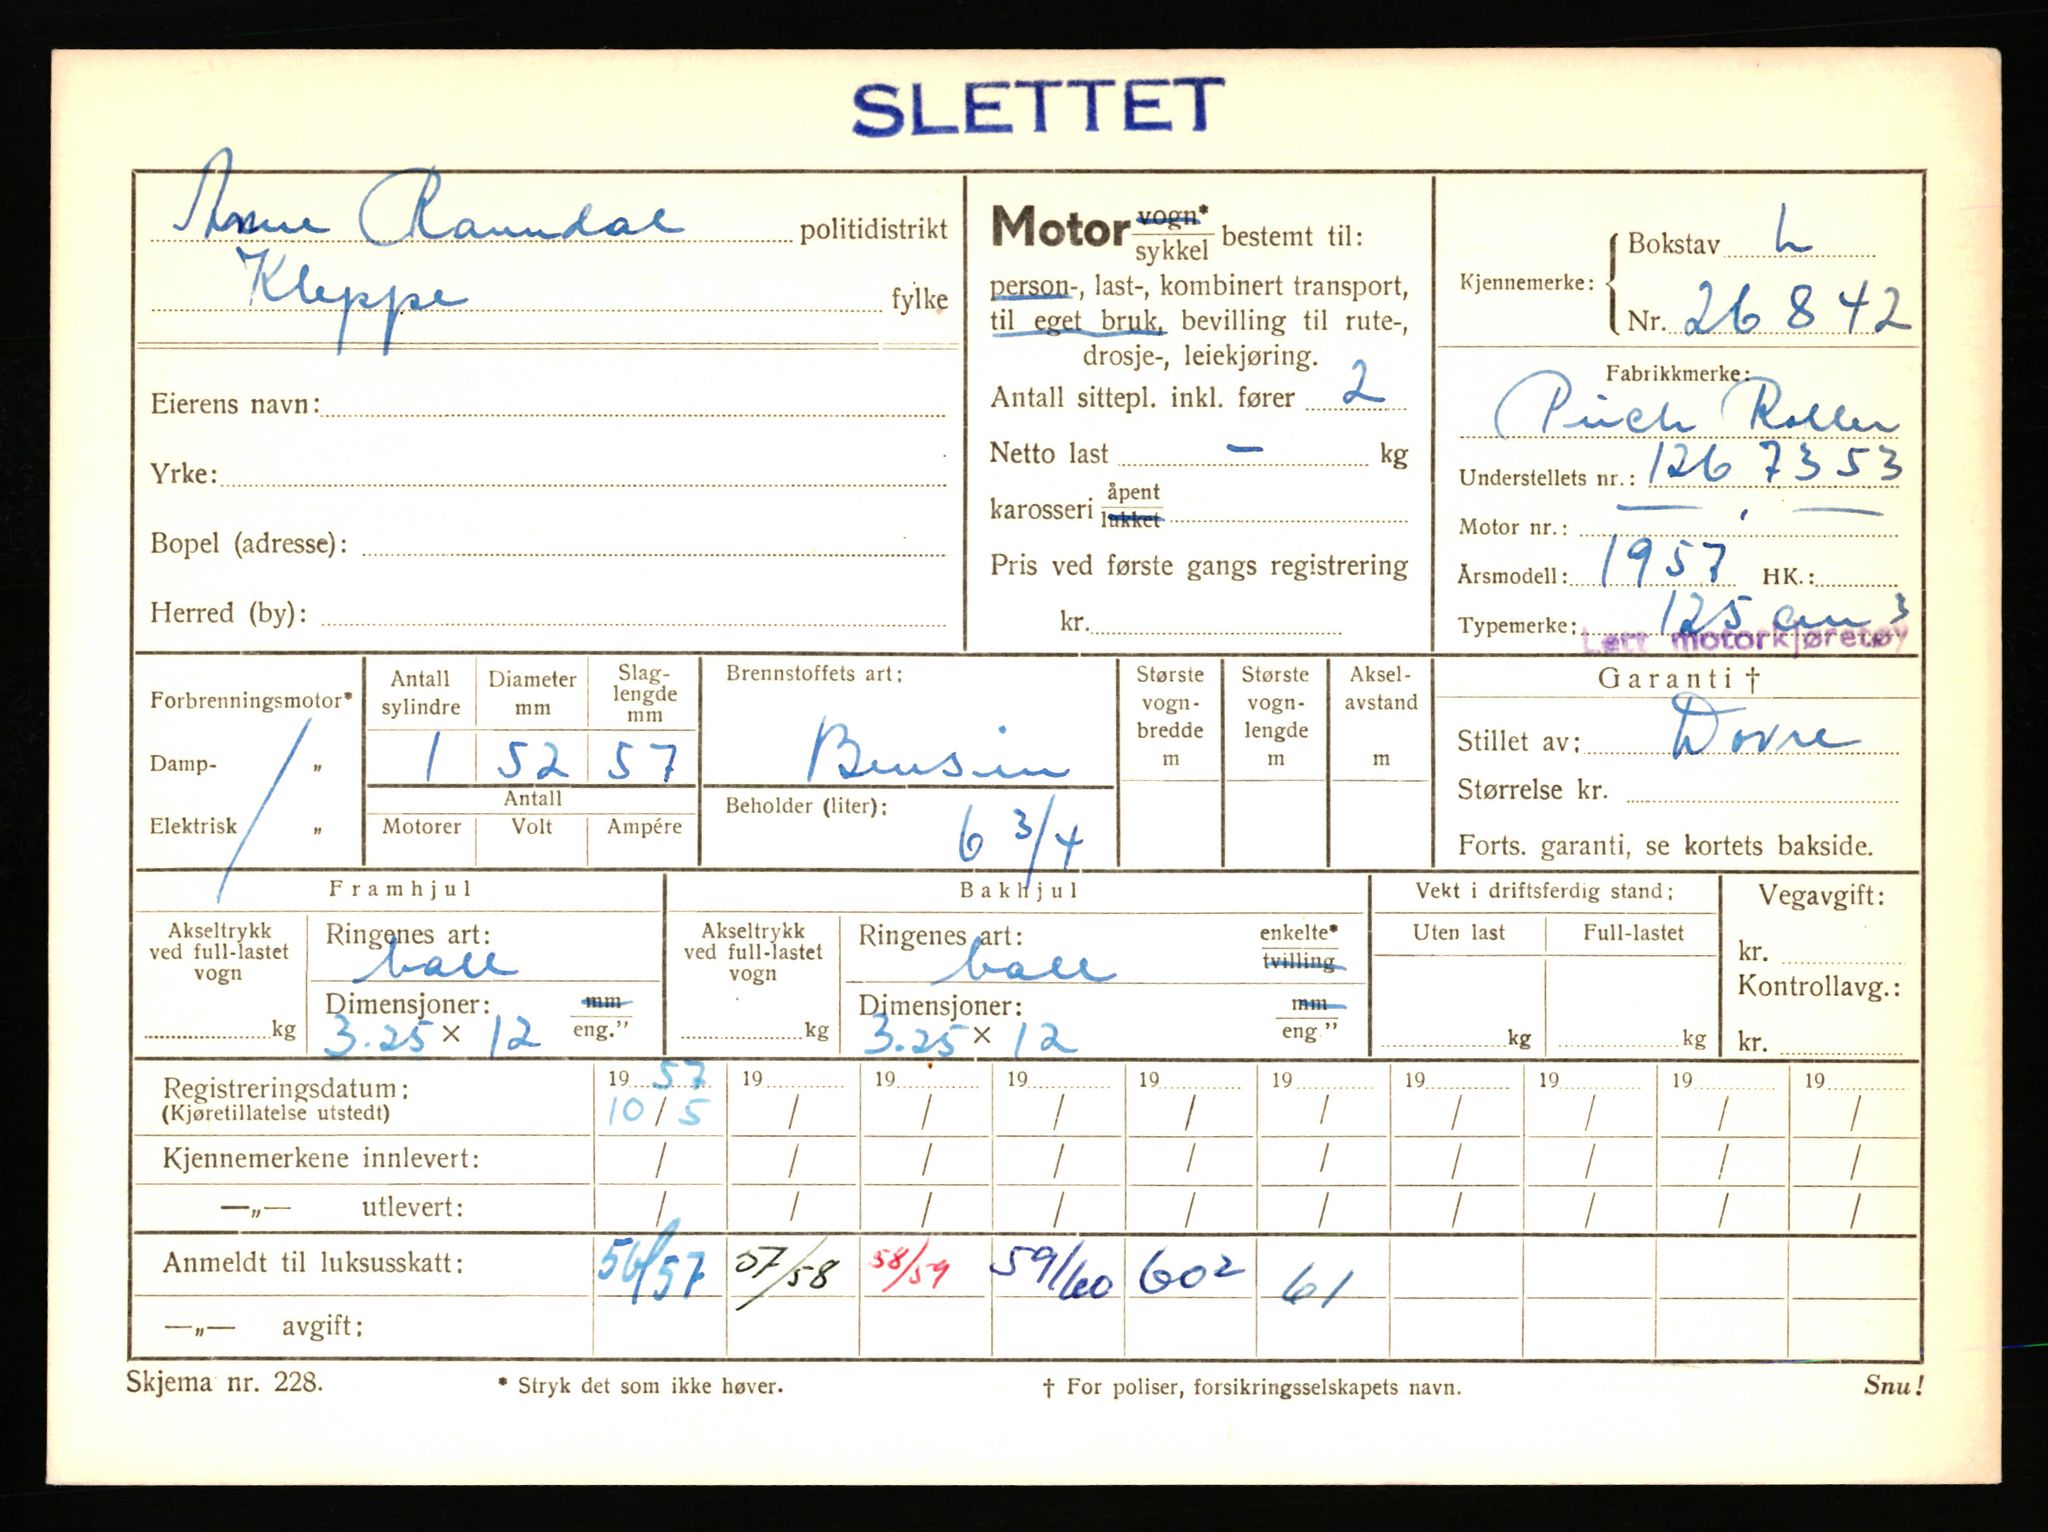 SLETTET
Arne Ravndal politidistrikt
Kleppe fylke
Eierens navn:
Yrke:
Bopel (adresse):
Herred (by):
Motor vogn* / sykkel bestemt til:
person-, last-, kombinert transport,
til eget bruk, bevilling til rute-,
drosje-, leiekjøring.
Antall sittepl. inkl. fører 2
Netto last – kg
karosseri åpent / lukket
Pris ved første gangs registrering
kr.
Kjennemerke: Bokstav L
Nr. 26842
Fabrikkmerke:
Puch Roller
Understellets nr.: 1267353
Motor nr.: — " —
Årsmodell: 1957 HK.:
Typemerke: 125 cm3
Lett motorkjøretøy
Forbrenningsmotor*
Damp- „
Elektrisk „
Antall sylindre 1
Diameter mm 52
Slag-lengde mm 57
Antall
Motorer Volt Ampére
Brennstoffets art:
Bensin
Beholder (liter):
6 3/4
Største vogn-bredde m
Største vogn-lengde m
Aksel-avstand m
Garanti †
Stillet av: Dovre
Størrelse kr.
Forts. garanti, se kortets bakside.
Framhjul
Akseltrykk ved full-lastet vogn kg
Ringenes art:
ball
Dimensjoner: mm / eng."
3.25 × 12
Bakhjul
Akseltrykk ved full-lastet vogn kg
Ringenes art: enkelte* / tvilling
ball
Dimensjoner: mm / eng"
3.25 × 12
Vekt i driftsferdig stand:
Uten last Full-lastet
kg kg
Vegavgift:
kr.
Kontrollavg.:
kr.
Registreringsdatum: 19 57 19 19 19 19 19 19 19 19 19
(Kjøretillatelse utstedt) 10 / 5 / / / / / / / / /
Kjennemerkene innlevert: / / / / / / / / / /
—„— utlevert: / / / / / / / / / /
Anmeldt til luksusskatt: 56/57 57/58 58/59 59/60 602 61
—„— avgift:
Skjema nr. 228. * Stryk det som ikke høver. † For poliser, forsikringsselskapets navn. Snu!